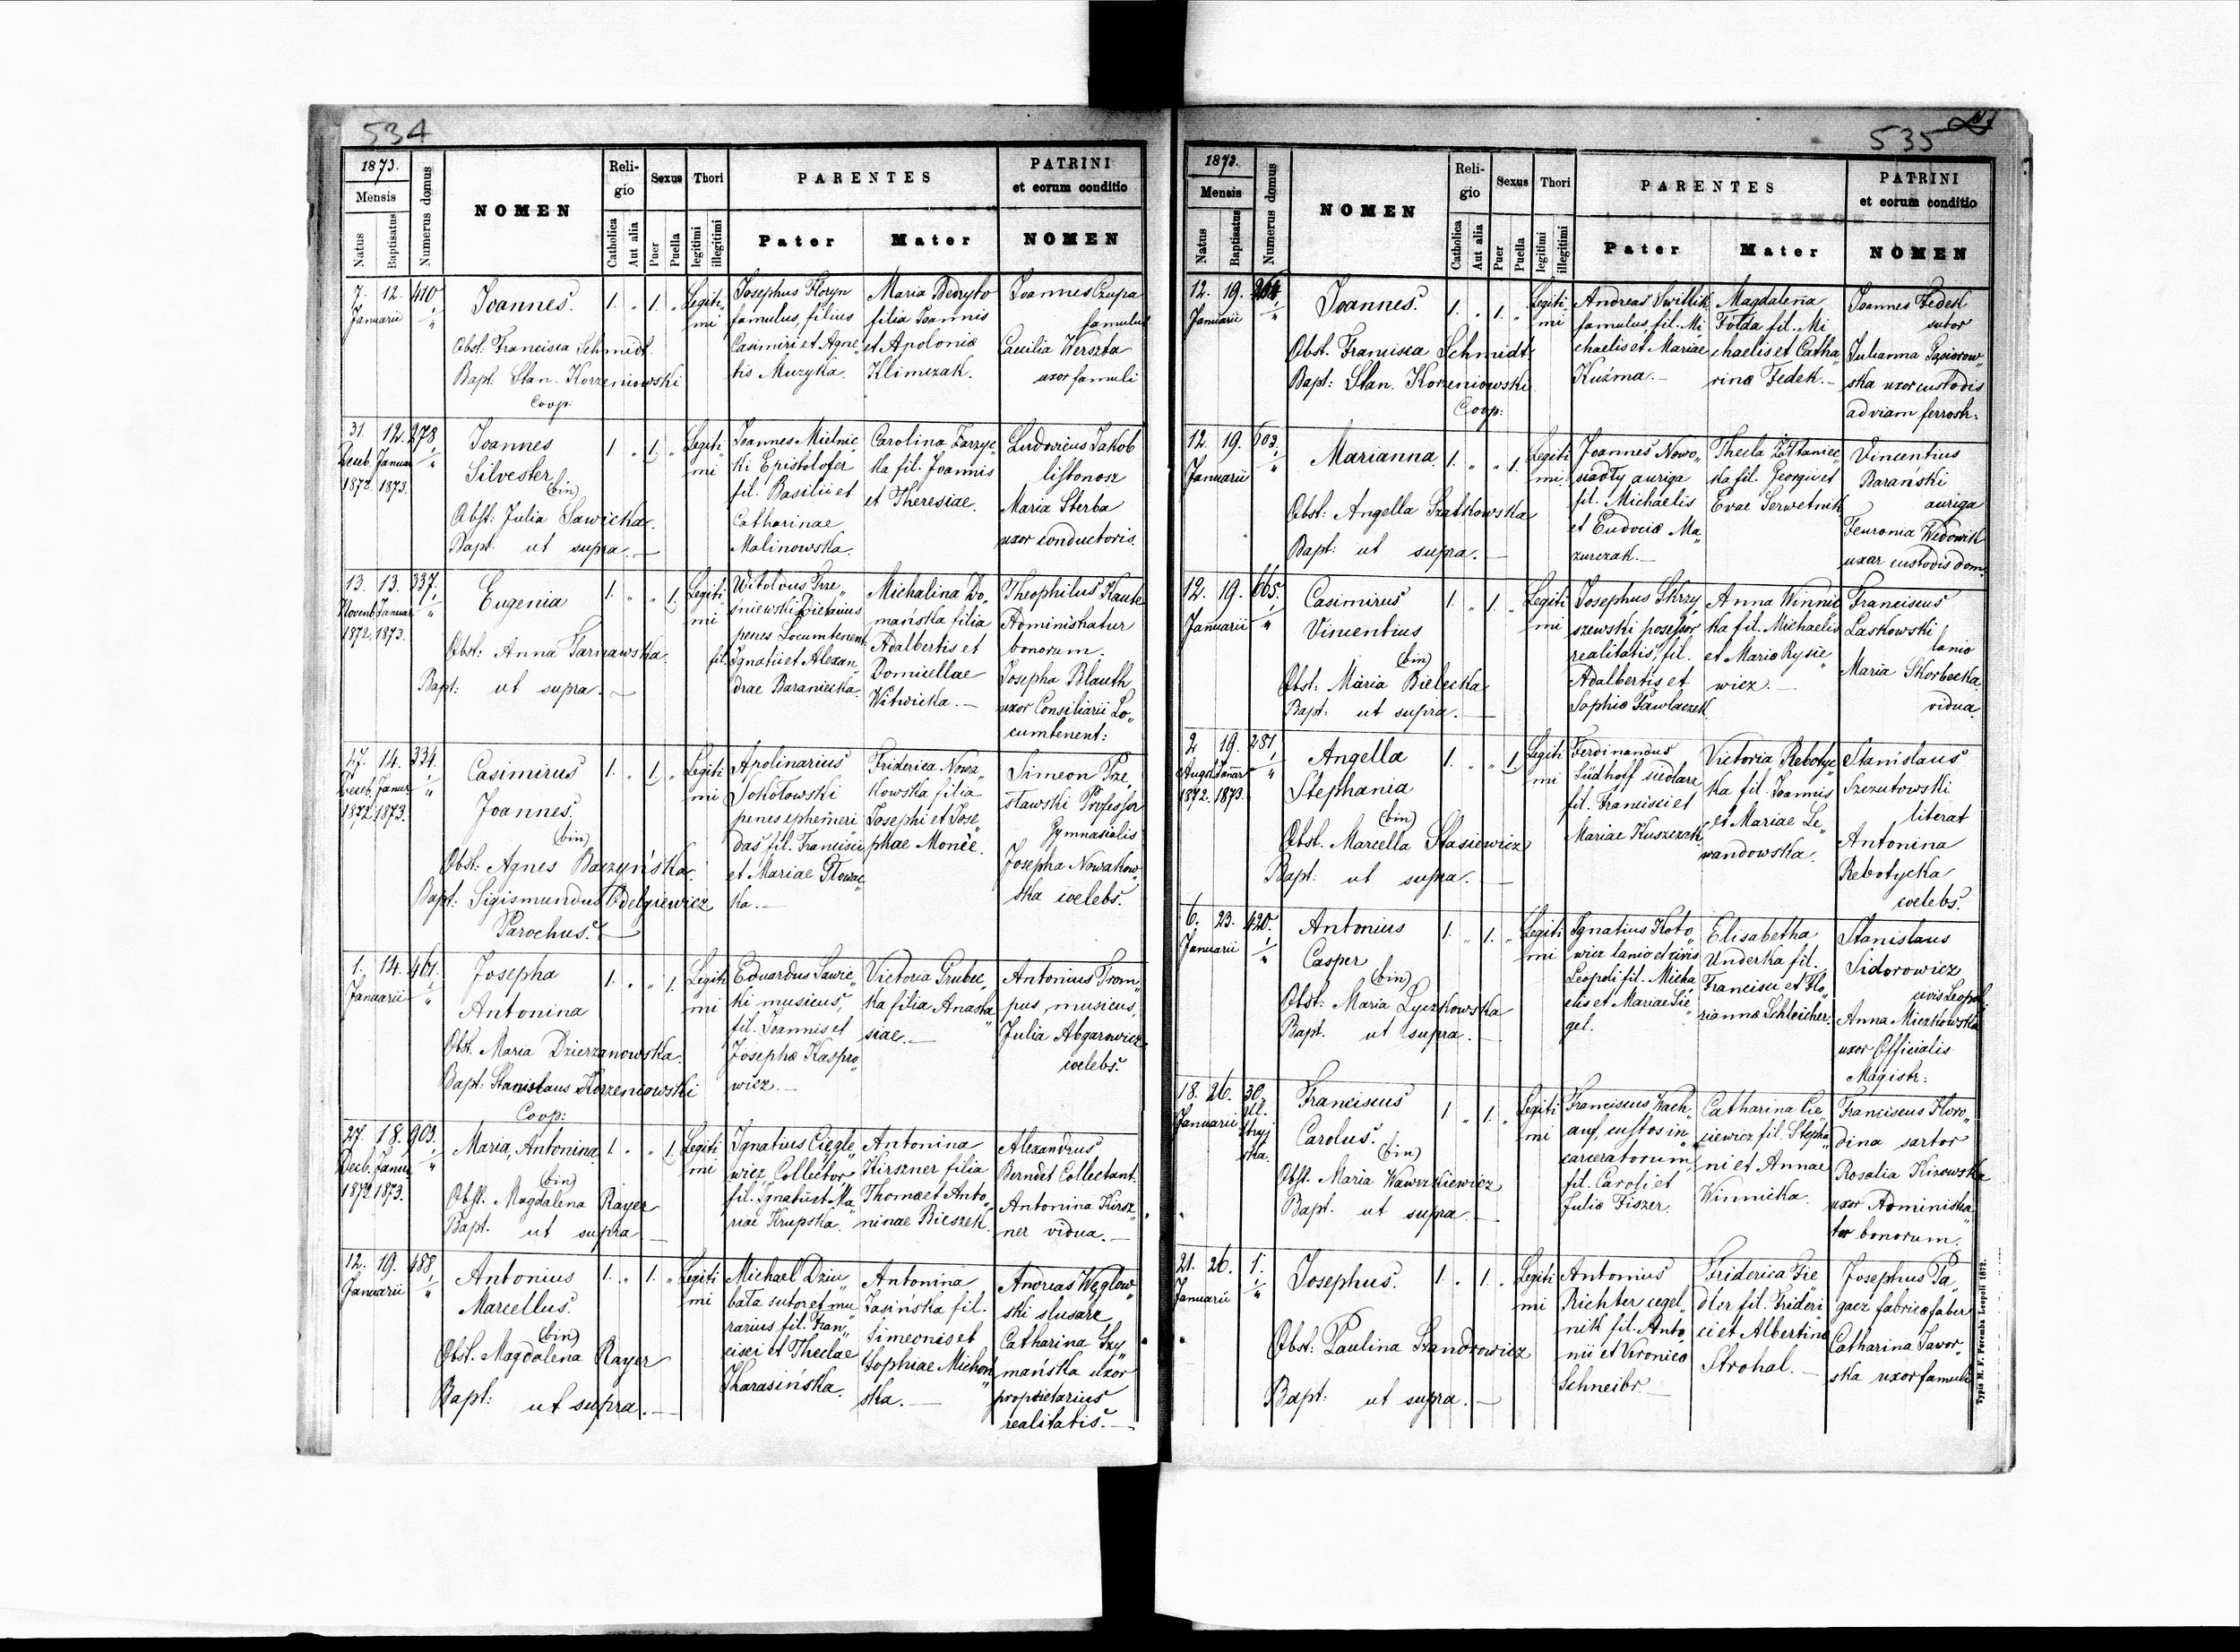 534
1873.
Mensis
Natus
Baptisatus
Numerus domus
NOMEN
Reli-
gio
Catholica
Aut alia
Sexus
Puer
Puella
Thori
legitimi
illegitimi
PARENTES
Pater
Mater
PATRINI
et eorum conditio
NOMEN
7. 12. 410
Januarii
Joannes.
Obst: Francisca Schmidt
Bapt: Stan. Korzeniowski
Coop:
1. „ 1. „
Legiti„
mi
Josephus Floryn
famulus, filius
Casimiri et Agne„
tis Muzyka.
Maria Bedryło
filia Joannis
et Apoloniæ
Klimczak.
Joannes Czupa
famulus
Caecilia Werszba
uxor famuli
31. 12. 278
Deceb. Januar
1872. 1873.
Joannes
Silvester
(bin)
Obst: Julia Sawicka.
Bapt: ut supra.—
1. „ 1. „
Legiti„
mi
Joannes Mielnic„
ki Epistolofer
fil. Basilii et
Catharinae
Malinowska.
Carolina Zarzyc„
ka fil. Joannis
et Theresiae.
Ludovicus Jakób
listonosz
Maria Sterba
uxor conductoris.
13. 13. 337.
Novemb. Januar
1872. 1873.
Eugenia
Obst: Anna Tarnawska.
Bapt: ut supra.—
1. „ „ 1.
Legiti
mi
Witoldus Grze„
śniewski Dietarius
penes Locumtenent:
fil. Ignatii et Alexan„
drae Baraniecka.
Michalina Do„
mańska filia
Adalbertis et
Domicellae
Witwicka.—
Theophilus Haute
Administratur
bonorum.
Josepha Blauth
uxor Consiliarii Lo„
cumtenent:
17. 14. 334.
Deceb. Januar
1872. 1873.
Casimirus
Joannes.
(bin)
Obst: Agnes Baczyńska.
Bapt: Sigismundus Odelgiewicz
Parochus.—
1. „ 1. „
Legiti
mi
Apolinarius
Sokołowski
penes ephemeri
das fil. Francisci
et Mariae Głowac„
ka.—
Friderica Nowa„
kowska filia
Josephi et Jose„
phae Moneé.
Simeon Trze„
sławski Professor
Gymnasialis
Josepha Nowakow„
ska coelebs.
1. 14. 461.
Januarii
Josepha
Antonina
Obst. Maria Dzierzanowska.
Bapt: Stanislaus Korzeniowski
Coop:
1. „ „ 1.
Legiti
mi
Eduardus Sawic„
ki musicus,
fil. Joannis et
Josephæ Kaspro„
wicz.—
Victoria Grubec„
ka filia Anasta„
siae.—
Antonius Trom„
pus, musicus,
Julia Abgarowicz
coelebs.
27. 18. 903.
Deceb. Januar
1872 1873.
Maria, Antonina.
(bin)
Obst. Magdalena Rayer
Bapt. ut supra—
1. „ „ 1.
Legiti
mi
Ignatius Cięgle„
wicz, Collector,
fil. Ignatii et Ma„
riae Krupska.
Antonina
Kirszner filia
Thomae et Anto„
ninae Bieszek.
Alexandrus
Berndt Collectant.
Antonina Kirsz„
ner vidua.—
12. 19. 488.
Januarii
Antonius
Marcellus.
(bin)
Obst. Magdalena Rayer
Bapt: ut supra.—
1. „ 1. „
Legiti
mi
Michael Dziu„
bała sutor et mu„
rarius fil. Fran„
cisci et Theclae
Tharasińska.
Antonina
Jasińska fil.
Simeonis et
Sophiae Michon„
ska.—
Andreas Węglow„
ski slusarz
Catharina Szy„
mańska uxor
proprietarius
realitatis.—
535
1873.
Mensis
Natus
Baptisatus
Numerus domus
NOMEN
Reli-
gio
Catholica
Aut alia
Sexus
Puer
Puella
Thori
legitimi
illegitimi
PARENTES
Pater
Mater
PATRINI
et eorum conditio
NOMEN
12. 19.
Januarii
Joannes.
Obst. Francisca Schmidt
Bapt: Stan. Korzeniowski
Coop:
1. „ 1. „
Legiti
mi
Andreas Switlik
famulus, fil. Mi
chaelis et Mariae
Kuźma.—
Magdalena
Fołda fil. Mi
chaelis et Catha
rinæ Fedek.—
Joannes Fedesl
sutor
Julianna Gąsiorow„
ska uxor custodis
ad viam ferrostr:
12. 19. 603.
Januarii
Marianna.
Obst: Angella Szatkowska
Bapt: ut supra.—
1. „ „ 1.
Legiti
mi.
Joannes Nowo„
siadły auriga
fil. Michaelis
et Eudociæ Ma„
zurczak.—
Thecla Żółtaniec„
ka fil. Georgii et
Evae Serwetnik
Vincentius
Barański
auriga
Feuronia Wdowik
uxor custodis dom:
12. 19. 665.
Januarii
Casimirus
Vincentius
(bin)
Obst: Maria Bielecka
Bapt: ut supra.—
1. „ 1. „
Legiti
mi
Josephus Skrzy„
szewski posessor
realitatis, fil.
Adalbertis et
Sophiæ Pawlaczek.
Anna Winnic
ka fil. Michaelis
et Mariæ Rysie„
wicz.—
Franciscus
Laskowski
lanio
Maria Skorbecka
vidua.
2 19. 281
August. Januar
1872. 1873.
Angella
Stephania
(bin)
Obst. Marcella Stasiewicz
Bapt: ut supra.—
1. „ „ 1.
Legiti
mi
Ferdinandus
Südhoff siodlarz
fil. Francisci et
Mariae Kuszczak.
Victoria Rebotyc
ka fil. Joannis
et Mariae Le„
wandowska.
Stanislaus
Szczutowski
literat
Antonina
Rebotycka
coelebs.
6. 23. 420.
Januarii
Antonius
Casper
(bin)
Obst: Maria Lyczkowska
Bapt. ut supra.—
1. „ 1. „
Legiti
mi
Ignatius Koto„
wicz lanio et civis
Leopoli fil. Micha
elis et Mariae Sie„
gel.
Elisabetha
Underka fil.
Francisci et Flo„
riannæ Schleicher.
Stanislaus
Sidorowicz
civis Leopoli
Anna Miczkowska
uxor Officialis
Magistr:
18. 26. 30.
Januarii
Franciscus
Carolus.
(bin)
Obst. Maria Wawrzkiewicz
Bapt. ut supra.—
1 „ 1. „
Legiti
mi
Franciscus Zach„
auf, custos in„
carceratorum,
fil. Caroli et
Juliæ Fiszer.
Catharina Cie„
siewicz fil. Stepha„
ni et Annae
Winnicka.
Franciscus Horo„
dina sartor
Rosalia Kizowska
uxor Administra„
tor bonorum.
21. 26. 1.
Januarii
Josephus.
Obst: Paulina Szandrowicz
Bapt: ut supra.—
1. „ 1. „
Legiti
mi
Antonius
Richter cegel„
nik fil. Anto„
nii et Veronicæ
Schneibr.—
Friderica Fie
dler fil. Frideri
ci et Albertinæ
Strohal.—
Josephus Pa„
gacz fabricæ faber
Catharina Jawor„
ska uxor famuli
Typis M. F. Poremba Leopoli 1872.